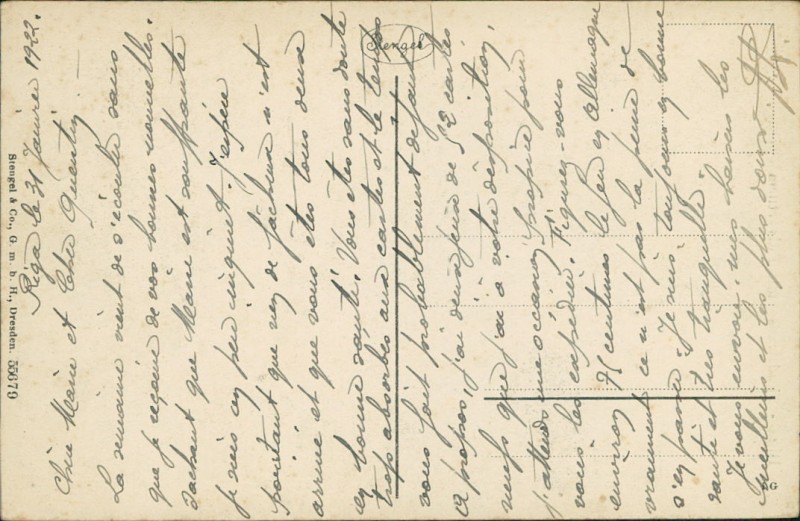 Riga le 31 Janvier 1922.
Chère Marie et Cher Quentin, —
La semaine vient de s'écouler sans
que je reçoive de vos bonnes nouvelles.
Sachant que Marie est souffrante
je suis un peu inquiet. J'espère
pourtant que rien de fâcheux n'est
arrivé et que vous êtes tous deux
en bonne santé. Vous êtes sans doute
trop absorbés aux cartes et le temps
vous fait probablement défaut.
A propos, j'ai deux jeux de 52 cartes
neufs que j'ai à votre disposition,
j'attends une occasion propice pour
vous les expédier. Figurez-vous
environ 75 centimes le jeu en Allemagne
vraiment ce n'est pas la peine de
s'en passer. Je suis toujours en bonne
santé et très tranquille.
Je vous envoie mes baisers les
meilleurs et les plus doux.
Stengel
Stengel & Co., G. m. b. H., Dresden. 55679